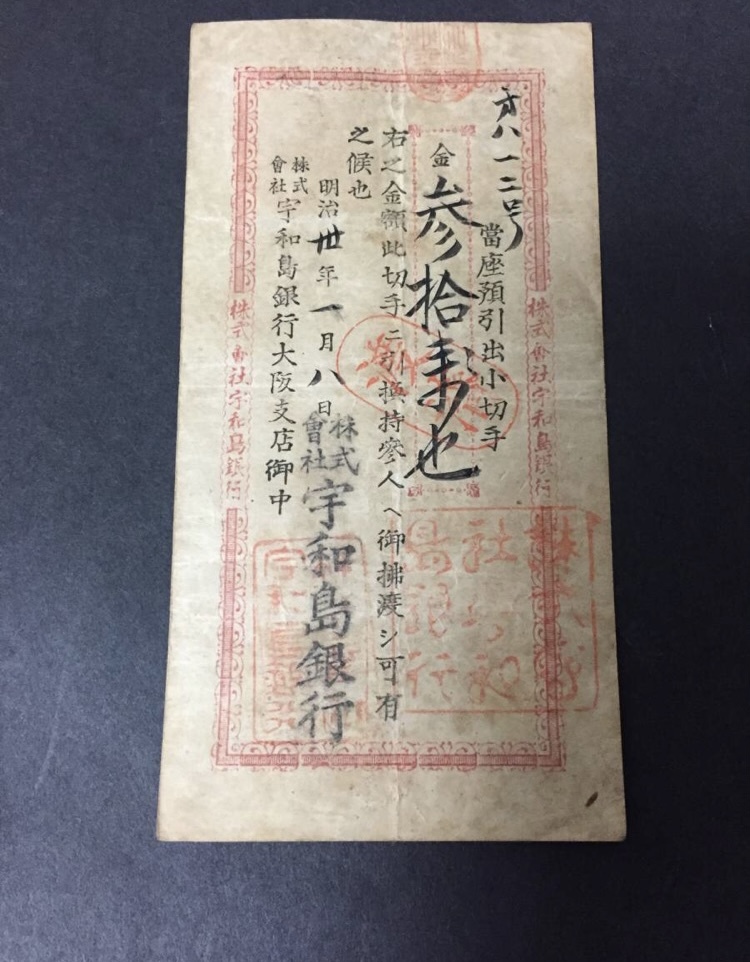 第八一二号
當座預引出小切手
金参拾銭也
右之金額此切手ニ引換持參人ヘ御拂渡シ可有
之候也
明治卅年一月八日
株式會社宇和島銀行
株式會社宇和島銀行大阪支店御中
株式會社宇和島銀行
株式會社宇和島銀行